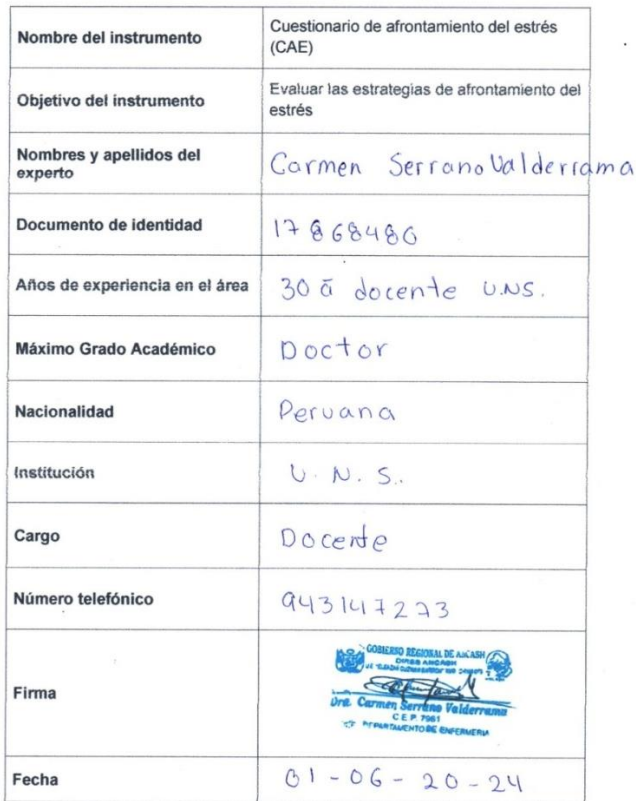 Nombre del instrumento
Cuestionario de afrontamiento del estrés
(CAE)
Objetivo del instrumento
Evaluar las estrategias de afrontamiento del
estrés
Nombres y apellidos del
experto
Carmen Serrano Valderrama
Documento de identidad
17868480
Años de experiencia en el área
30 a docente U.N.S.
Máximo Grado Académico
Doctor
Nacionalidad
Peruana
Institución
U. N. S.
Cargo
Docente
Número telefónico
943147273
Firma
GOBIERNO REGIONAL DE ANCASH
DIRES ANCASH
Dra. Carmen Serrano Valderrama
C.E.P. 7961
DEPARTAMENTO DE ENFERMERIA
Fecha
01-06-20-24